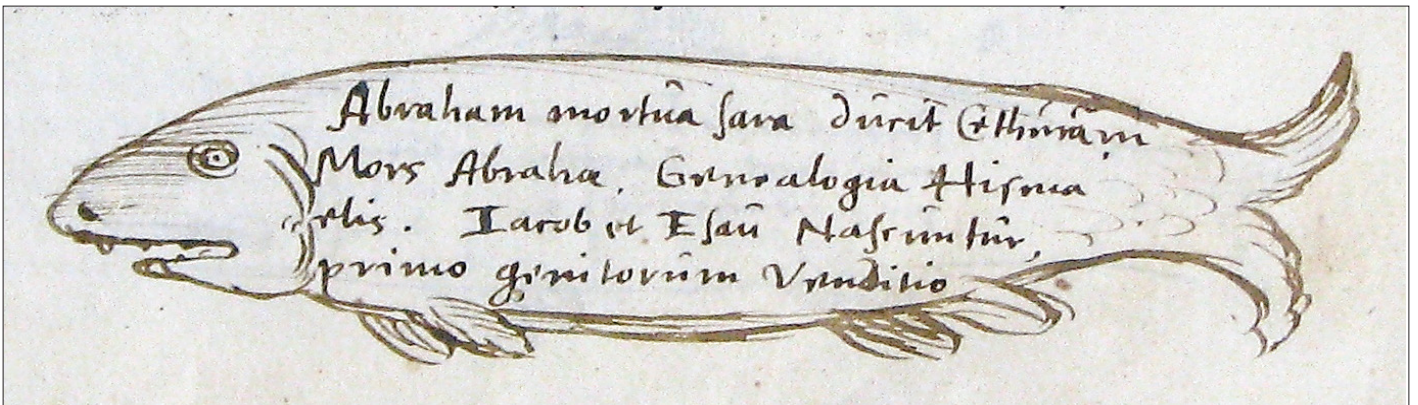 Abraham mortua sara ducit Cethuram
Mors Abrahæ. Genealogia Hisma
elis. Iacob et Esau Nascuntur,
primo genitorum Venditio